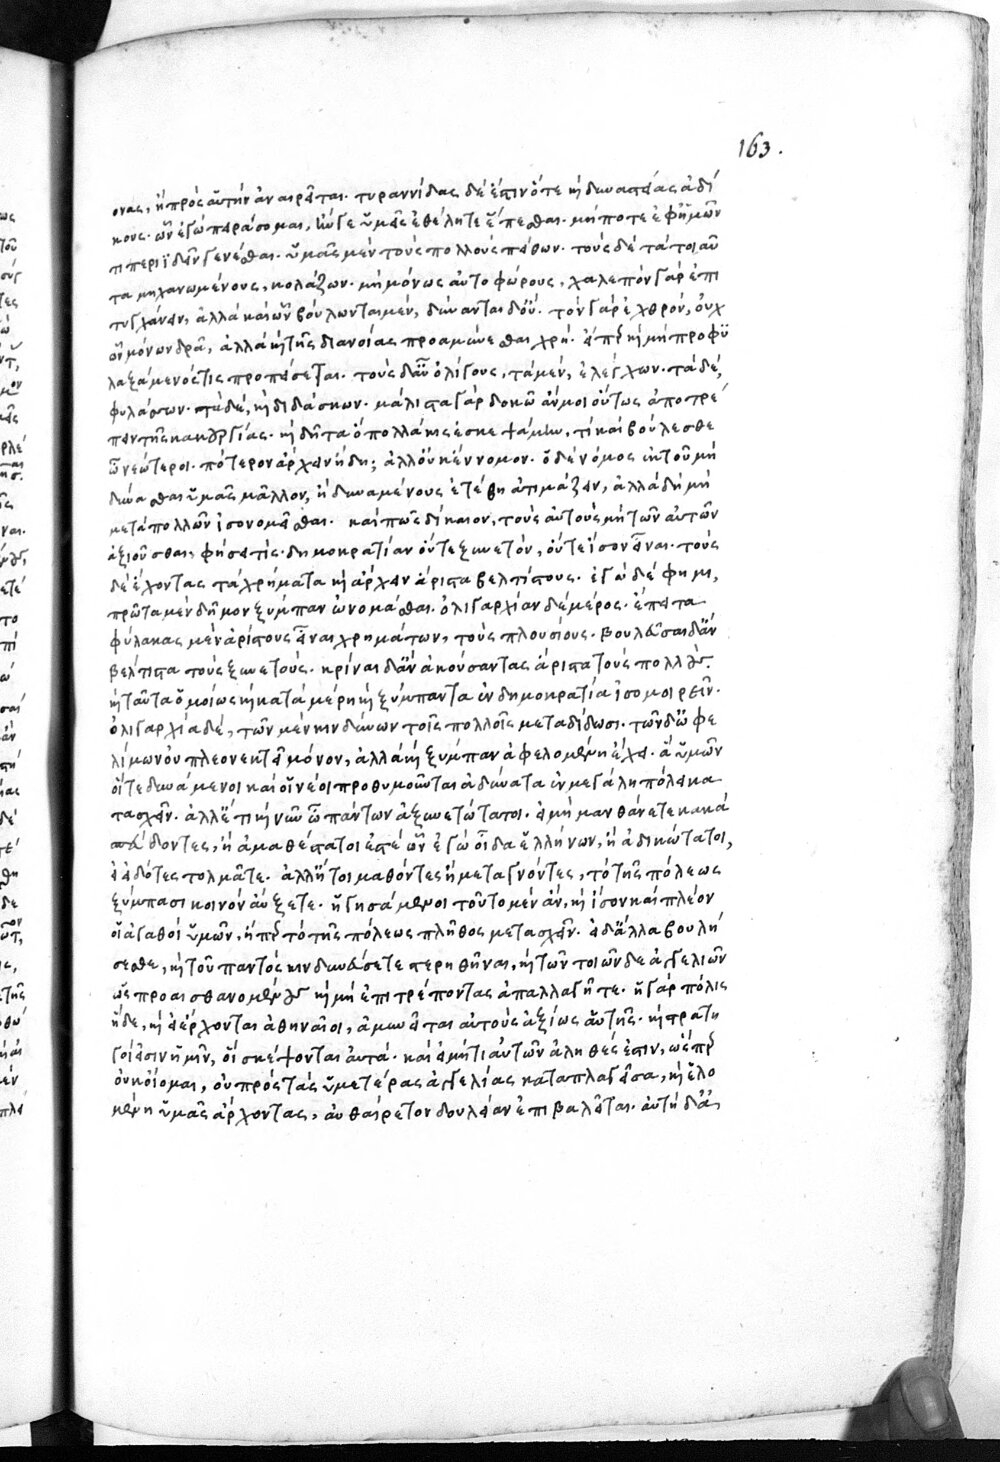 163.
ονας, ἢ πρὸς αὑτὴν ἀναιρεῖται. τυραννίδας δὲ ἔστιν ὅτε καὶ δυναστείας ἀδί
κους. ὧν ἐγὼ πειράσομαι, ἤν γε ὑμεῖς ἐθέλητε ἕπεσθαι. μήποτε ἐφ' ἡμῶν
τι περιϊδεῖν γενέσθαι. ὑμᾶς μὲν τοὺς πολλοὺς πείθων. τοὺς δὲ τὰ τοιαῦ
τα μηχανωμένους, κολάζων. μὴ μόνως αὐτοφώρους, χαλεπὸν γὰρ ἐπι
τυγχάνειν, ἀλλὰ καὶ ὧν βούλονται μέν, δύνανται δ' οὔ. τὸν γὰρ ἐχθρόν, οὐχ
ὧν μόνων δρᾷ, ἀλλὰ καὶ τῆς διανοίας προαμύνεσθαι χρή. εἴπερ καὶ μὴ προφυ
λαξάμενός τις προπείσεται. τοὺς δ' αὖ ὀλίγους, τὰ μέν, ἐλέγχων. τὰ δέ,
φυλάσσων. τὰ δέ, καὶ διδάσκων. μάλιστα γὰρ δοκῶ ἄν μοι οὕτως ἀποτρέ
πειν τῆς κακουργίας. καὶ δῆτα ὃ πολλάκις ἐσκεψάμην, τί καὶ βούλεσθε
ὦ νεώτεροι. πότερον ἄρχειν ἤδη; ἀλλ' οὐκ ἔννομον. ὁ δὲ νόμος ἐκ τοῦ μὴ
δύνασθαι ὑμᾶς μᾶλλον, ἢ δυναμένους ἐτέθη ἀτιμάζειν, ἀλλὰ δὴ μὴ
μετὰ πολλῶν ἰσονομεῖσθαι. καὶ πῶς δίκαιον, τοὺς αὐτοὺς μὴ τῶν αὐτῶν
ἀξιοῦσθαι, φήσει τίς. δημοκρατίαν οὔτε ξυνετόν, οὔτε ἴσον εἶναι. τοὺς
δὲ ἔχοντας τὰ χρήματα καὶ ἄρχειν ἄριστα βελτίστους. ἐγὼ δέ φημι,
πρῶτα μὲν δῆμον ξύμπαν ὠνομάσθαι. ὀλιγαρχίαν δὲ μέρος. ἔπειτα
φύλακας μὲν ἀρίστους εἶναι χρημάτων, τοὺς πλουσίους. βουλεῦσαι δ' ἂν
βέλτιστα τοὺς ξυνετούς. κρῖναι δ' ἂν ἀκούσαντας ἄριστα τοὺς πολλούς.
καὶ ταῦτα ὁμοίως καὶ κατὰ μέρη καὶ ξύμπαντα ἐν δημοκρατίᾳ ἰσομοιρεῖν.
ὀλιγαρχία δέ, τῶν μὲν κινδύνων τοῖς πολλοῖς μεταδίδωσι. τῶν δ' ὠφε
λίμων οὐ πλεονεκτεῖ μόνον, ἀλλὰ καὶ ξύμπαν ἀφελομένη ἔχει. ἃ ὑμῶν
οἵ τε δυνάμενοι καὶ οἱ νέοι προθυμοῦνται ἀδύνατα ἐν μεγάλῃ πόλει κα
τασχεῖν. ἀλλ' ἔτι καὶ νῦν ὦ πάντων ἀξυνετώτατοι. εἰ μὴ μανθάνετε κακὰ
σπεύδοντες, ἢ ἀμαθέστατοί ἐστε ὧν ἐγὼ οἶδα ἑλλήνων, ἢ ἀδικώτατοι,
εἰ εἰδότες τολμᾶτε. ἀλλ' ἤτοι μαθόντες ἢ μεταγνόντες, τὸ τῆς πόλεως
ξύμπασι κοινὸν αὔξετε. ἡγησάμενοι τοῦτο μὲν ἄν, καὶ ἴσον καὶ πλέον
οἱ ἀγαθοὶ ὑμῶν, ἤπερ τὸ τῆς πόλεως πλῆθος μετασχεῖν. εἰ δ' ἄλλα βουλή
σεσθε, καὶ τοῦ παντὸς κινδυνεύσετε στερηθῆναι, καὶ τῶν τοιῶνδε ἀγγελιῶν
ὡς προαισθανομένους καὶ μὴ ἐπιτρέποντας ἀπαλλάγητε. ἡ γὰρ πόλις
ἥδε, καὶ εἰ ἔρχονται ἀθηναῖοι, ἀμυνεῖται αὐτοὺς ἀξίως αὑτῆς. καὶ στρατη
γοί εἰσιν ἡμῖν, οἳ σκέψονται αὐτά. καὶ εἰ μή τι αὐτῶν ἀληθές ἐστιν, ὥσπερ
οὐκ οἴομαι, οὐ πρὸς τὰς ὑμετέρας ἀγγελίας καταπλαγεῖσα, καὶ ἑλο
μένη ὑμᾶς ἄρχοντας, αὐθαίρετον δουλείαν ἐπιβαλεῖται. αὐτὴ δ' ἐφ'